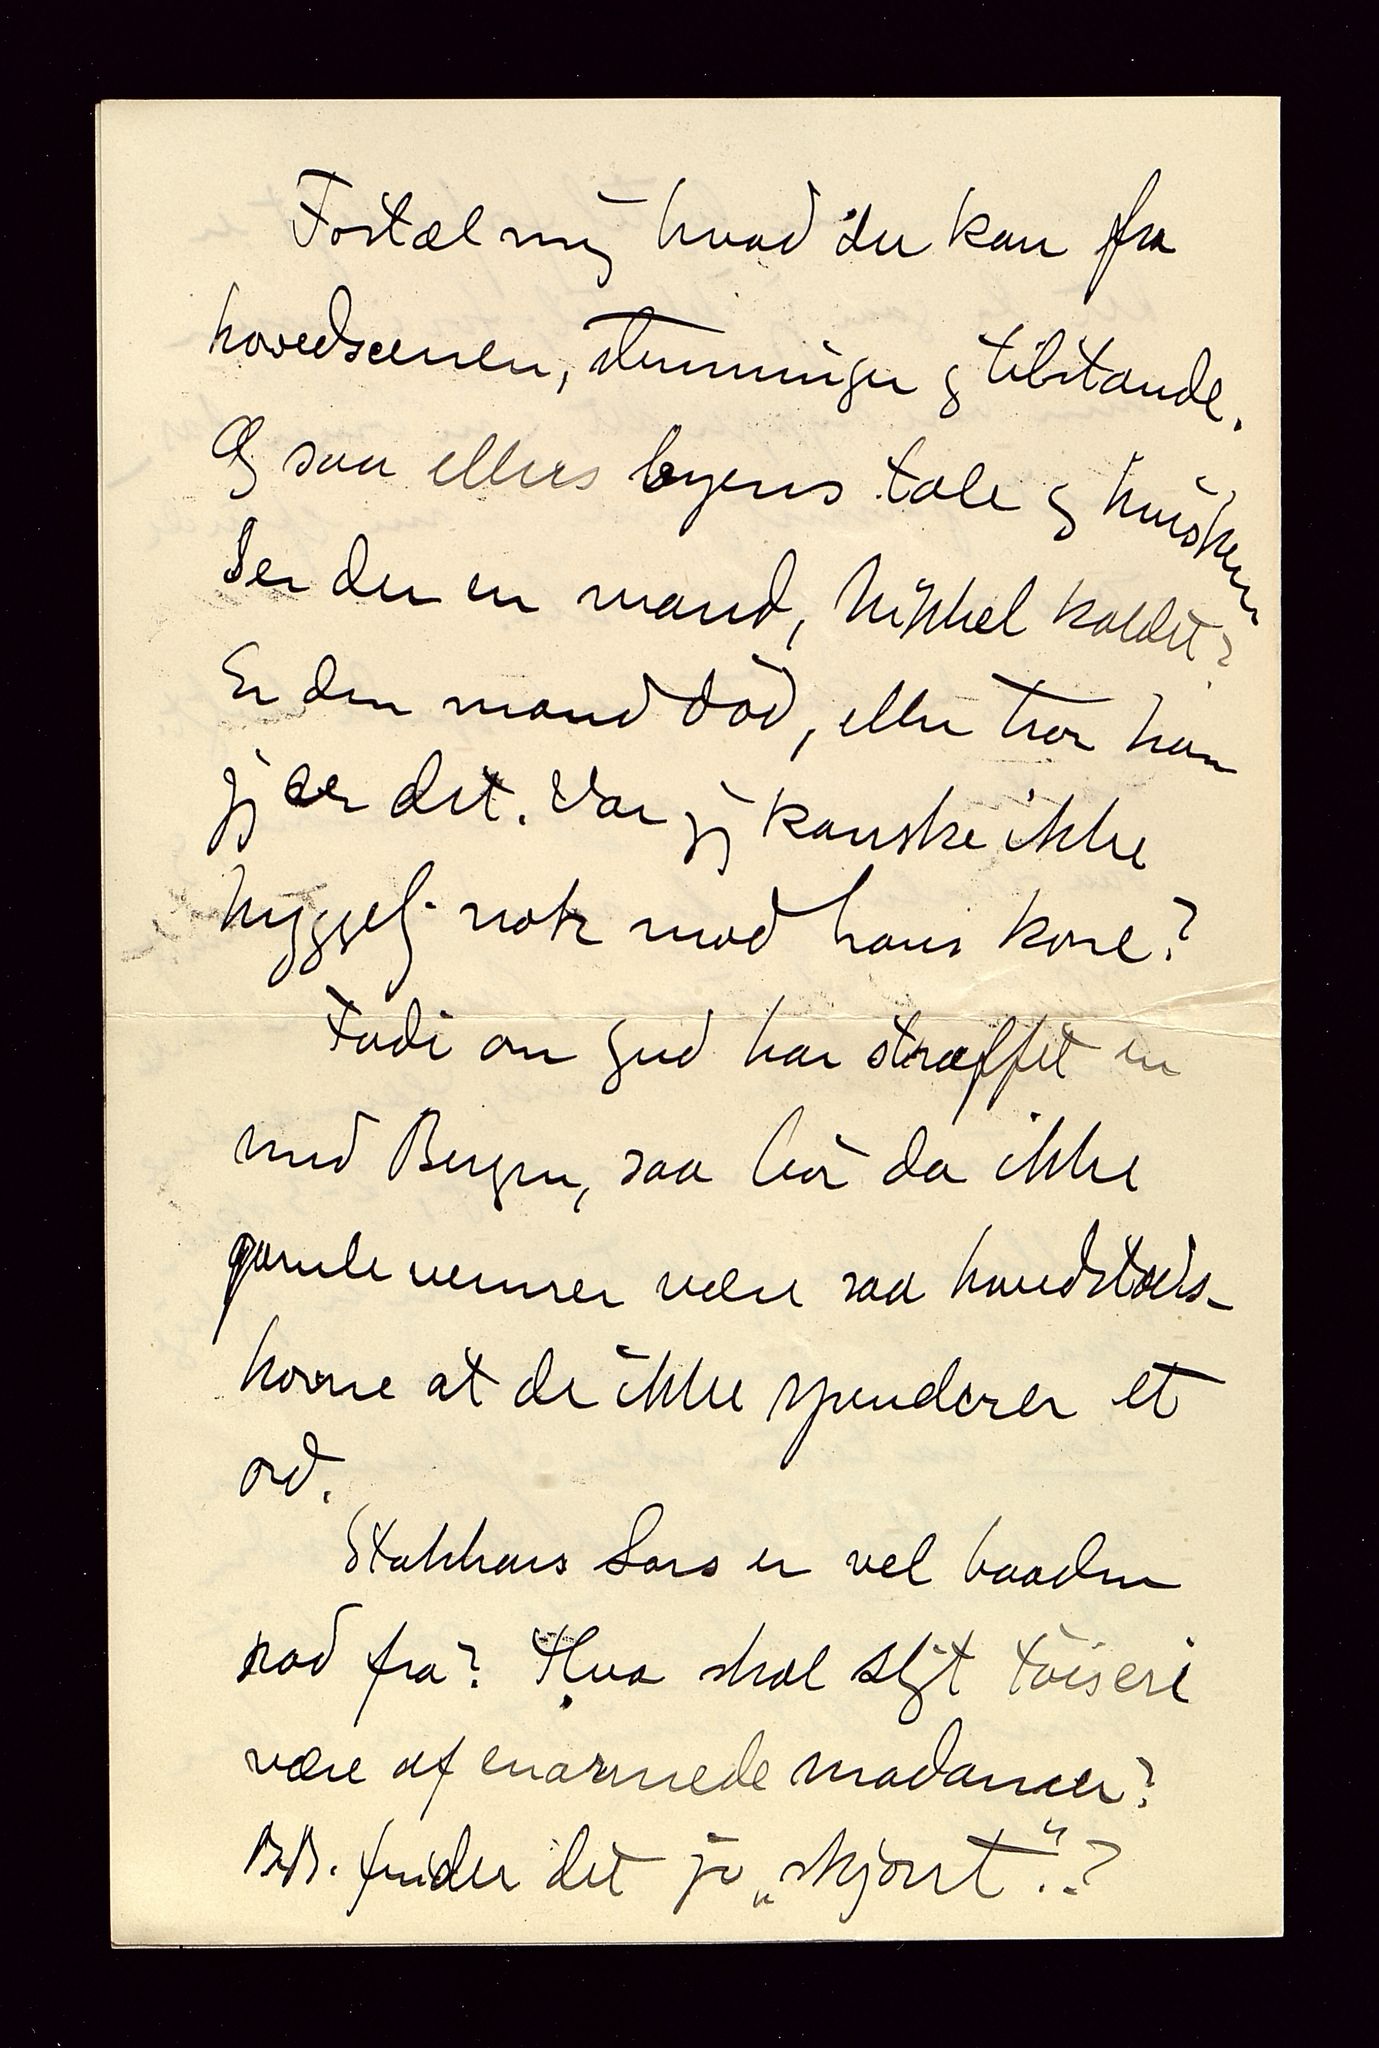 Fortæl mig hvad du kan fra
hovedscenen, stemninger og tilstande.
Og saa ellers byens tale og hvisken
Ser du en mand, Nikkel kaldet?
Er den mand död, eller tror han
jeg er det. Var jeg kanske ikke
hyggelig nok mod hans kone?
Fordi om gud har straffet en
med Bergen, saa bör da ikke
gamle venner være saa hovedstads-
horne at de ikke spenderer et
ord.
Stakkars Lars er vel baaden
rad fra? Hva skal sligt töiseri
være af enarmede madamer?
B.B. finder det jo „skjönt“.?